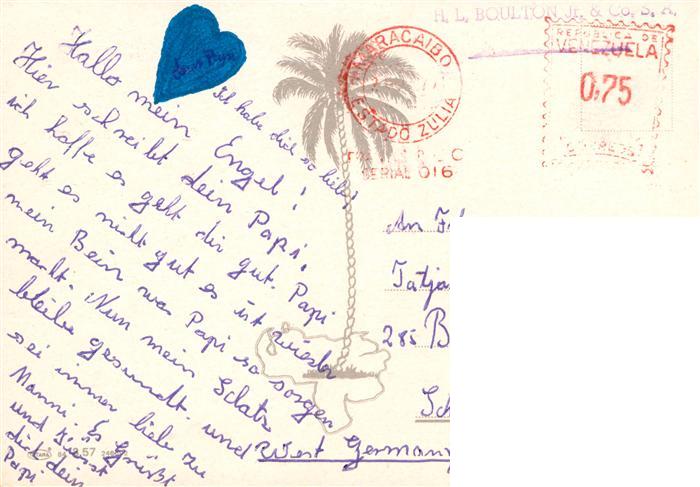 H. L. BOULTON Jr. & Co. S. A.
MARACAIBO
ESTADO ZULIA
SERIAL 016
REPUBLICA DE
VENEZUELA
0,75
Hallo mein Engel!
Ich habe dich so lieb
Hier schreibt dein Papi,
ich hoffe es geht dir gut. Papi
geht es nicht gut es ist wieder
mein Bein was Papi so sorgen
macht. Nun mein Schatz
bleibe gesundt. und
sei immer liebe zu
Manni. Es Grüßt
und küsst
dich dein
Papi
An
Tatja
285 B
Sch
West Germany